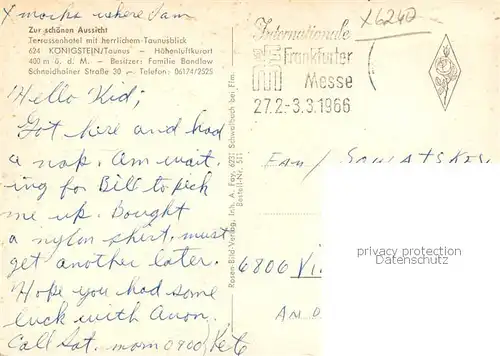 X marks where I am
Zur schönen Aussicht
Terrassenhotel mit herrlichem-Taunusblick
624 KÖNIGSTEIN/Taunus - Höhenluftkurort
400 m ü. d. M. - Besitzer: Familie Bandlow
Schneidhainer Straße 30 - Telefon: 06174/2525
Hello Kid;
Got here and had
a nap. Am wait.
ing for Bill to pick
me up. Bought
a nylon shirt. must
get another later.
Hope you had some
luck with Avon.
Call Sat. morn 0900
Rosen-Bild-Verlag, Inh. A. Fay, 6231 Schwalbach bei Ffm.
Bestell-Nr. 511
X6240
Internationale
Frankfurter
Messe
27.2.-3.3.1966
6806
privacy protection
Datenschutz